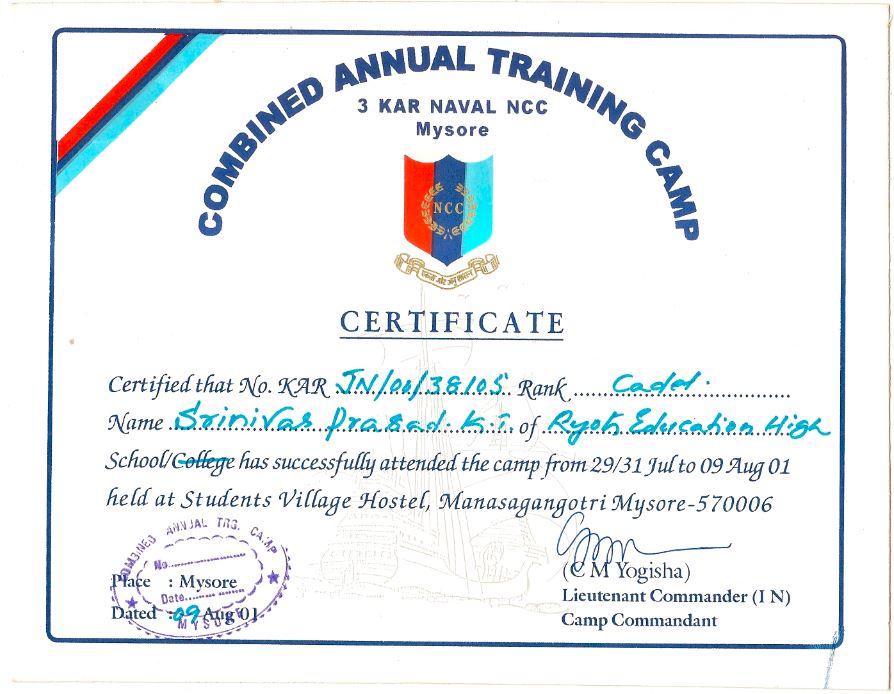 COMBINED ANNUAL TRAINING CAMP
3 KAR NAVAL NCC
Mysore
NCC
एकता और अनुशासन
CERTIFICATE
Certified that No. KAR JN/00/38105 Rank Cadet.
Name Srinivas Prasad. K.T. of Ryots Education High
School/College has successfully attended the camp from 29/31 Jul to 09 Aug 01
held at Students Village Hostel, Manasagangotri Mysore-570006
COMBINED ANNUAL TRG. CAMP
No.
Date
MYSORE
Place : Mysore
Dated : 09 Aug 01
(C M Yogisha)
Lieutenant Commander (I N)
Camp Commandant